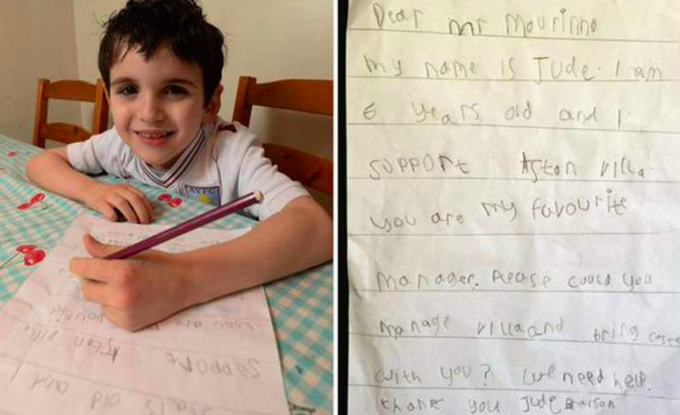 AVFC
you are
Aston villa
support
old and I
Dear mr Mourinho
my name is Jude. I am
6 years old and I
support Aston villa.
you are my favourite
manager. Please could you
manage villa and bring
with you? we need help.
thank you Jude